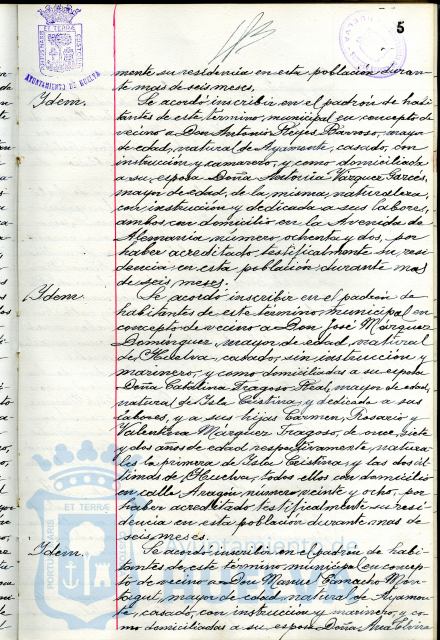 5
AYUNTAMIENTO DE HUELVA
mente su residencia en esta población duran-
te mas de seis meses.
Idem.
Se acordó inscribir en el padrón de habi-
tantes de este término municipal en concepto de
vecino a Don Antonio Reyes Barroso, mayor
de edad, natural de Ayamonte, casado, con
instrucción y camarero, y como domiciliada
a su esposa Doña Antonia Vázquez Garcés,
mayor de edad, de la misma naturaleza,
con instrucción y dedicada a sus labores,
ambos con domicilio en la Avenida de
Alemania número ochenta y dos, por
haber acreditado testificalmente su resi-
dencia en esta población durante mas
de seis meses.
Idem.
Se acordó inscribir en el padrón de
habitantes de este término municipal en
concepto de vecino a Don José Márquez
Domínguez, mayor de edad, natural
de Huelva, casado, sin instrucción y
marinero, y como domiciliadas a su esposa
Doña Catalina Fragoso Real, mayor de edad,
natural de Isla Cristina, y dedicada a sus
labores, y a sus hijas Carmen, Rosario y
Valentina Márquez Fragoso, de once, siete
y dos años de edad respectivamente, natura-
les la primera de Isla Cristina, y las dos úl-
timas de Huelva, todos ellos con domicilio
en calle Aragón número veinte y ocho, por
haber acreditado testificalmente su resi-
dencia en esta población durante mas de
seis meses.
Idem.
Se acordó inscribir en el padrón de habi-
tantes de este término municipal en con-
cepto de vecino a Don Manuel Camacho
mayor de edad, natural de Ayamon-
te, casado, con instrucción y marinero, y co-
mo domiciliadas a su esposa Doña Ana
ET TERRÆ
PORTUS MARIS
Ayuntamiento de